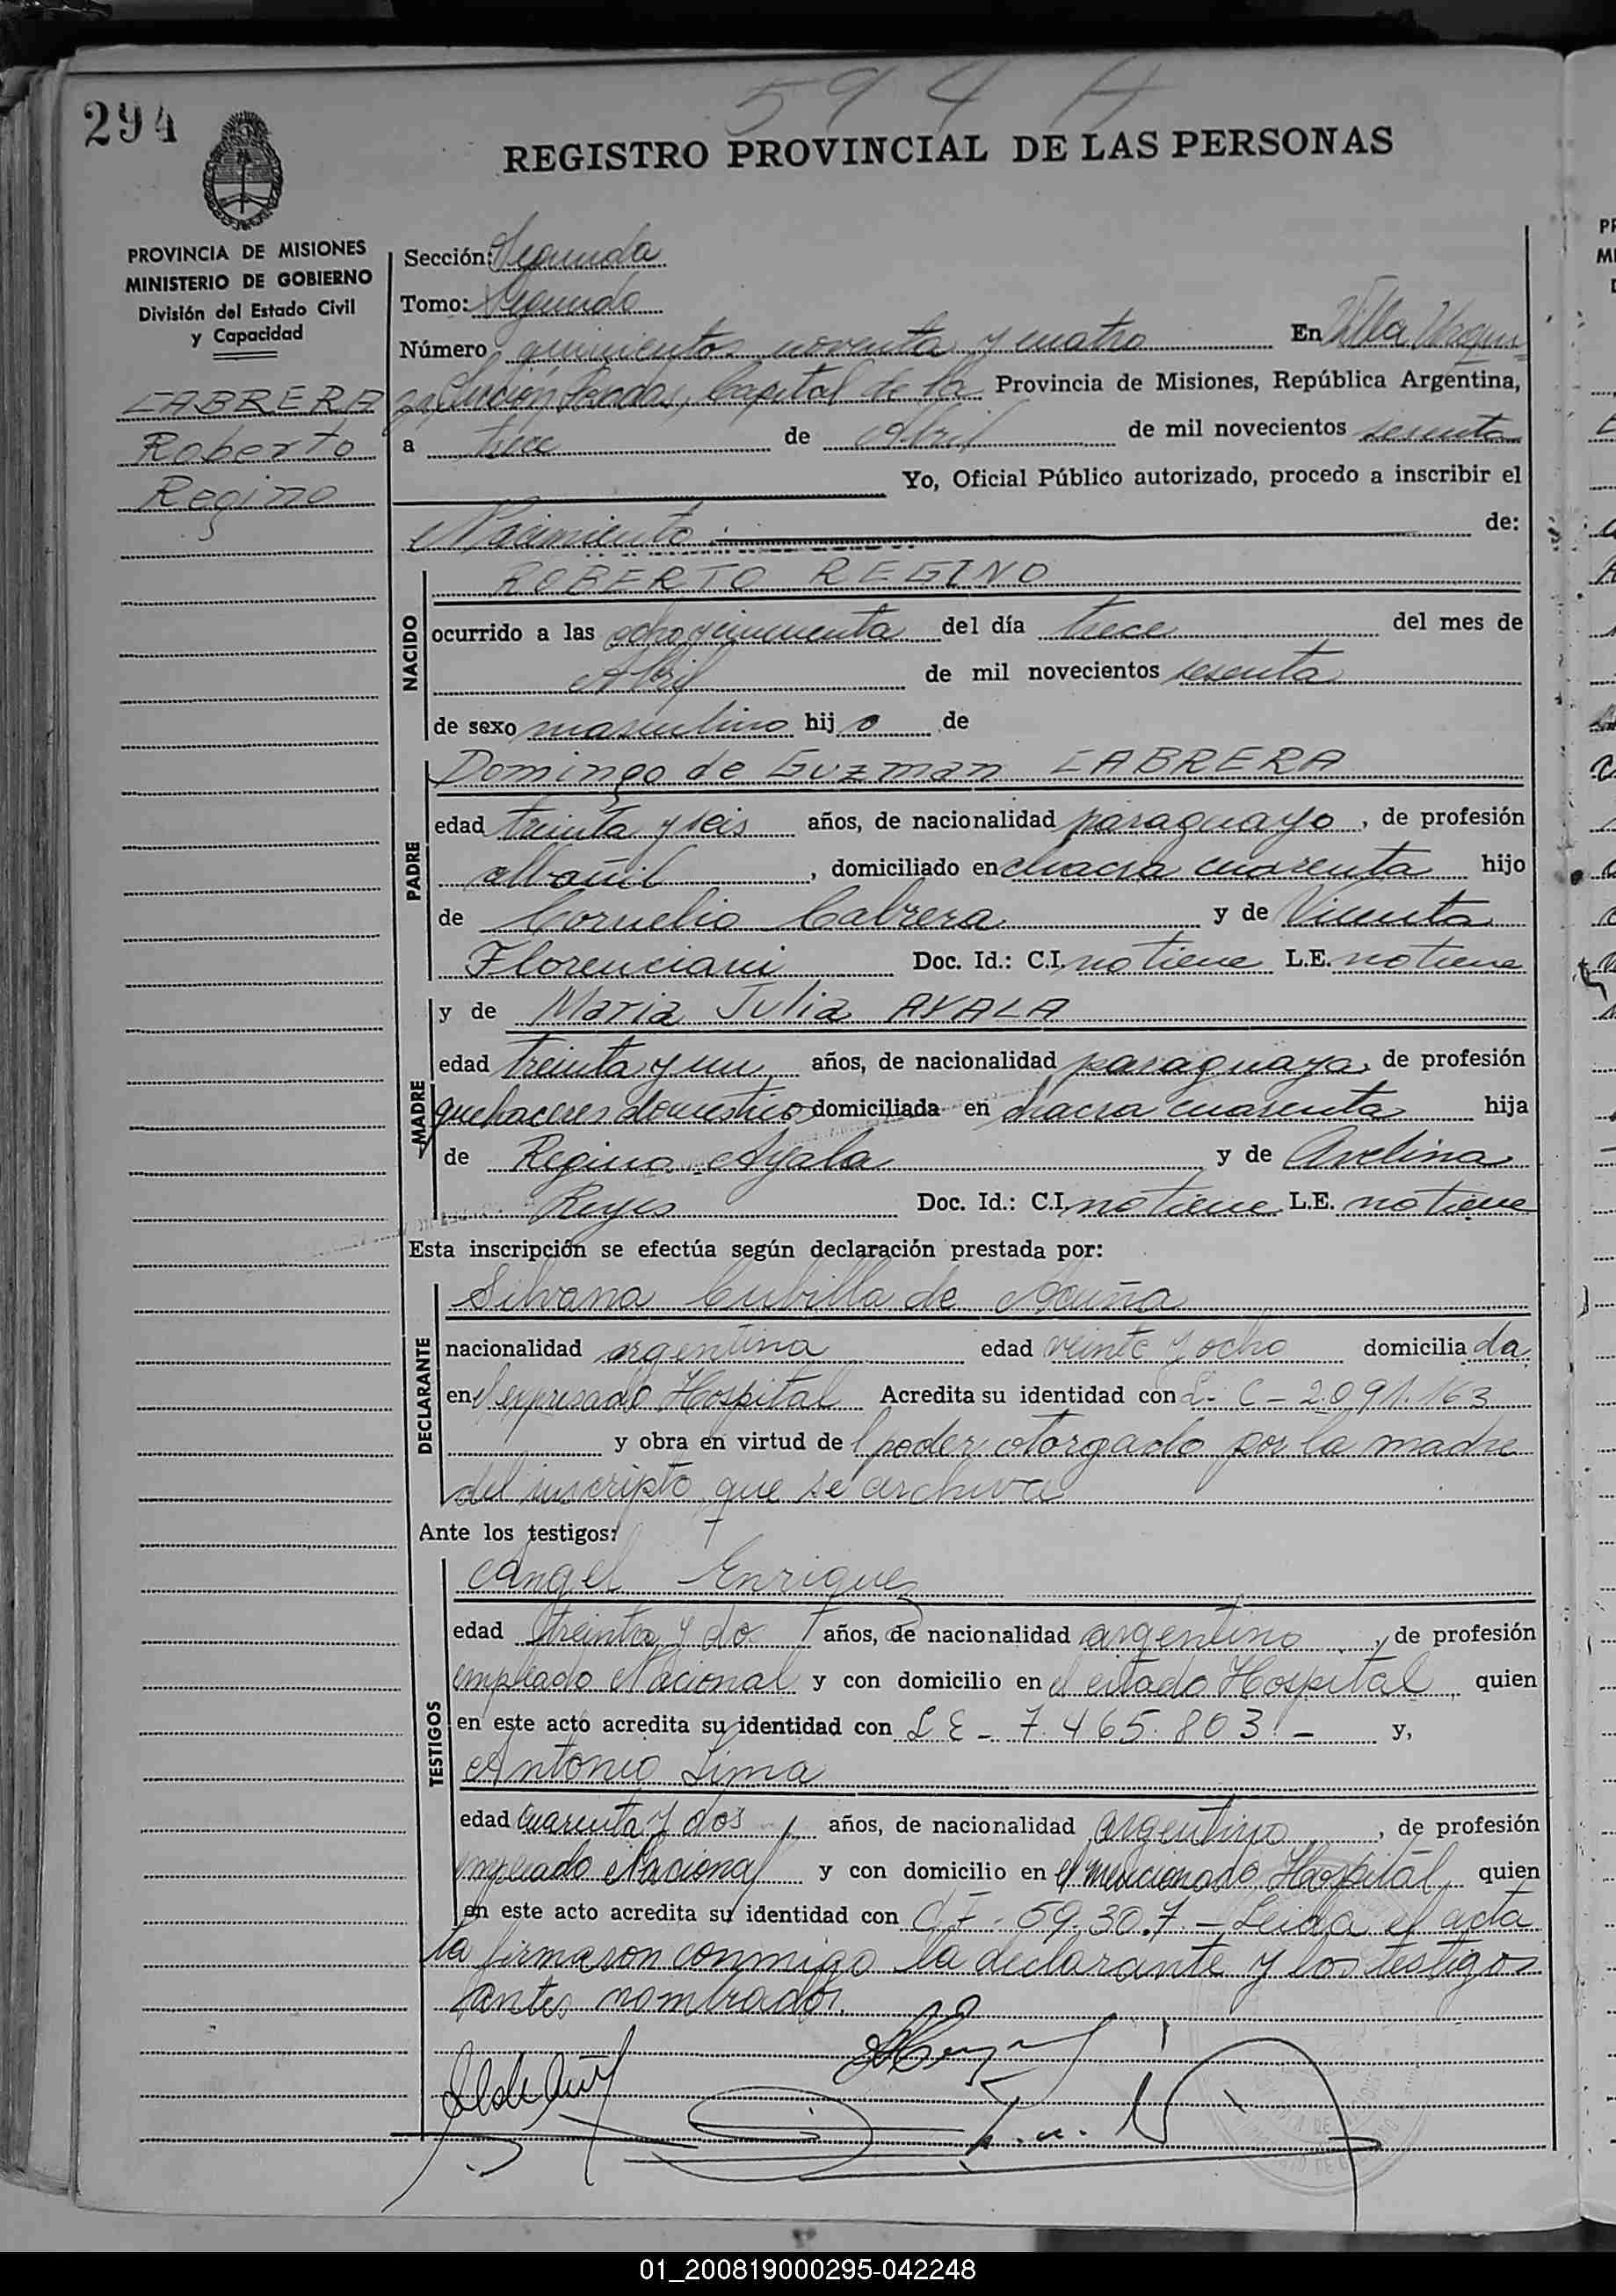 594 H
294
REGISTRO PROVINCIAL DE LAS PERSONAS
PROVINCIA DE MISIONES
MINISTERIO DE GOBIERNO
División del Estado Civil
y Capacidad
CABRERA
Roberto
Regino
Sección: Segunda
Tomo: Segundo
Número quinientos noventa y cuatro En Villa Urqui=
za, Sección Posadas, Capital de la Provincia de Misiones, República Argentina,
a trece de Abril de mil novecientos sesenta
Yo, Oficial Público autorizado, procedo a inscribir el
Nacimiento de:
NACIDO
ROBERTO REGINO
ocurrido a las ocho y cincuenta del día trece del mes de
Abril de mil novecientos sesenta
de sexo masculino hijo de
PADRE
Domingo de Guzman CABRERA
edad treinta y seis años, de nacionalidad paraguayo, de profesión
albañil, domiciliado en chacra cuarenta hijo
de Cornelio Cabrera y de Vicenta
Florenciani Doc. Id.: C.I. no tiene L.E. no tiene
MADRE
y de Maria Julia AYALA
edad treinta y un años, de nacionalidad paraguaya, de profesión
quehaceres domestico domiciliada en chacra cuarenta hija
de Regino Ayala y de Avelina
Reyes Doc. Id.: C.I. no tiene L.E. no tiene
Esta inscripción se efectúa según declaración prestada por:
DECLARANTE
Silvana Cubilla de Acuña
nacionalidad argentina edad veinte y ocho domiciliada
en el expresado Hospital Acredita su identidad con L. C - 2.091.163
y obra en virtud del poder otorgado por la madre
del inscripto que se archiva
Ante los testigos:
TESTIGOS
Angel Enriquez
edad treinta y do años, de nacionalidad argentino, de profesión
empleado Nacional y con domicilio en el citado Hospital quien
en este acto acredita su identidad con L E - 7.465.803. - y,
Antonio Lima
edad cuarenta y dos años, de nacionalidad argentino, de profesión
empleado Nacional y con domicilio en el mencionado Hospital quien
en este acto acredita su identidad con C I - 59.307 - Leida el acta
la firmaron conmigo la declarante y los testigos
antes nombrados.
01_200819000295-042248